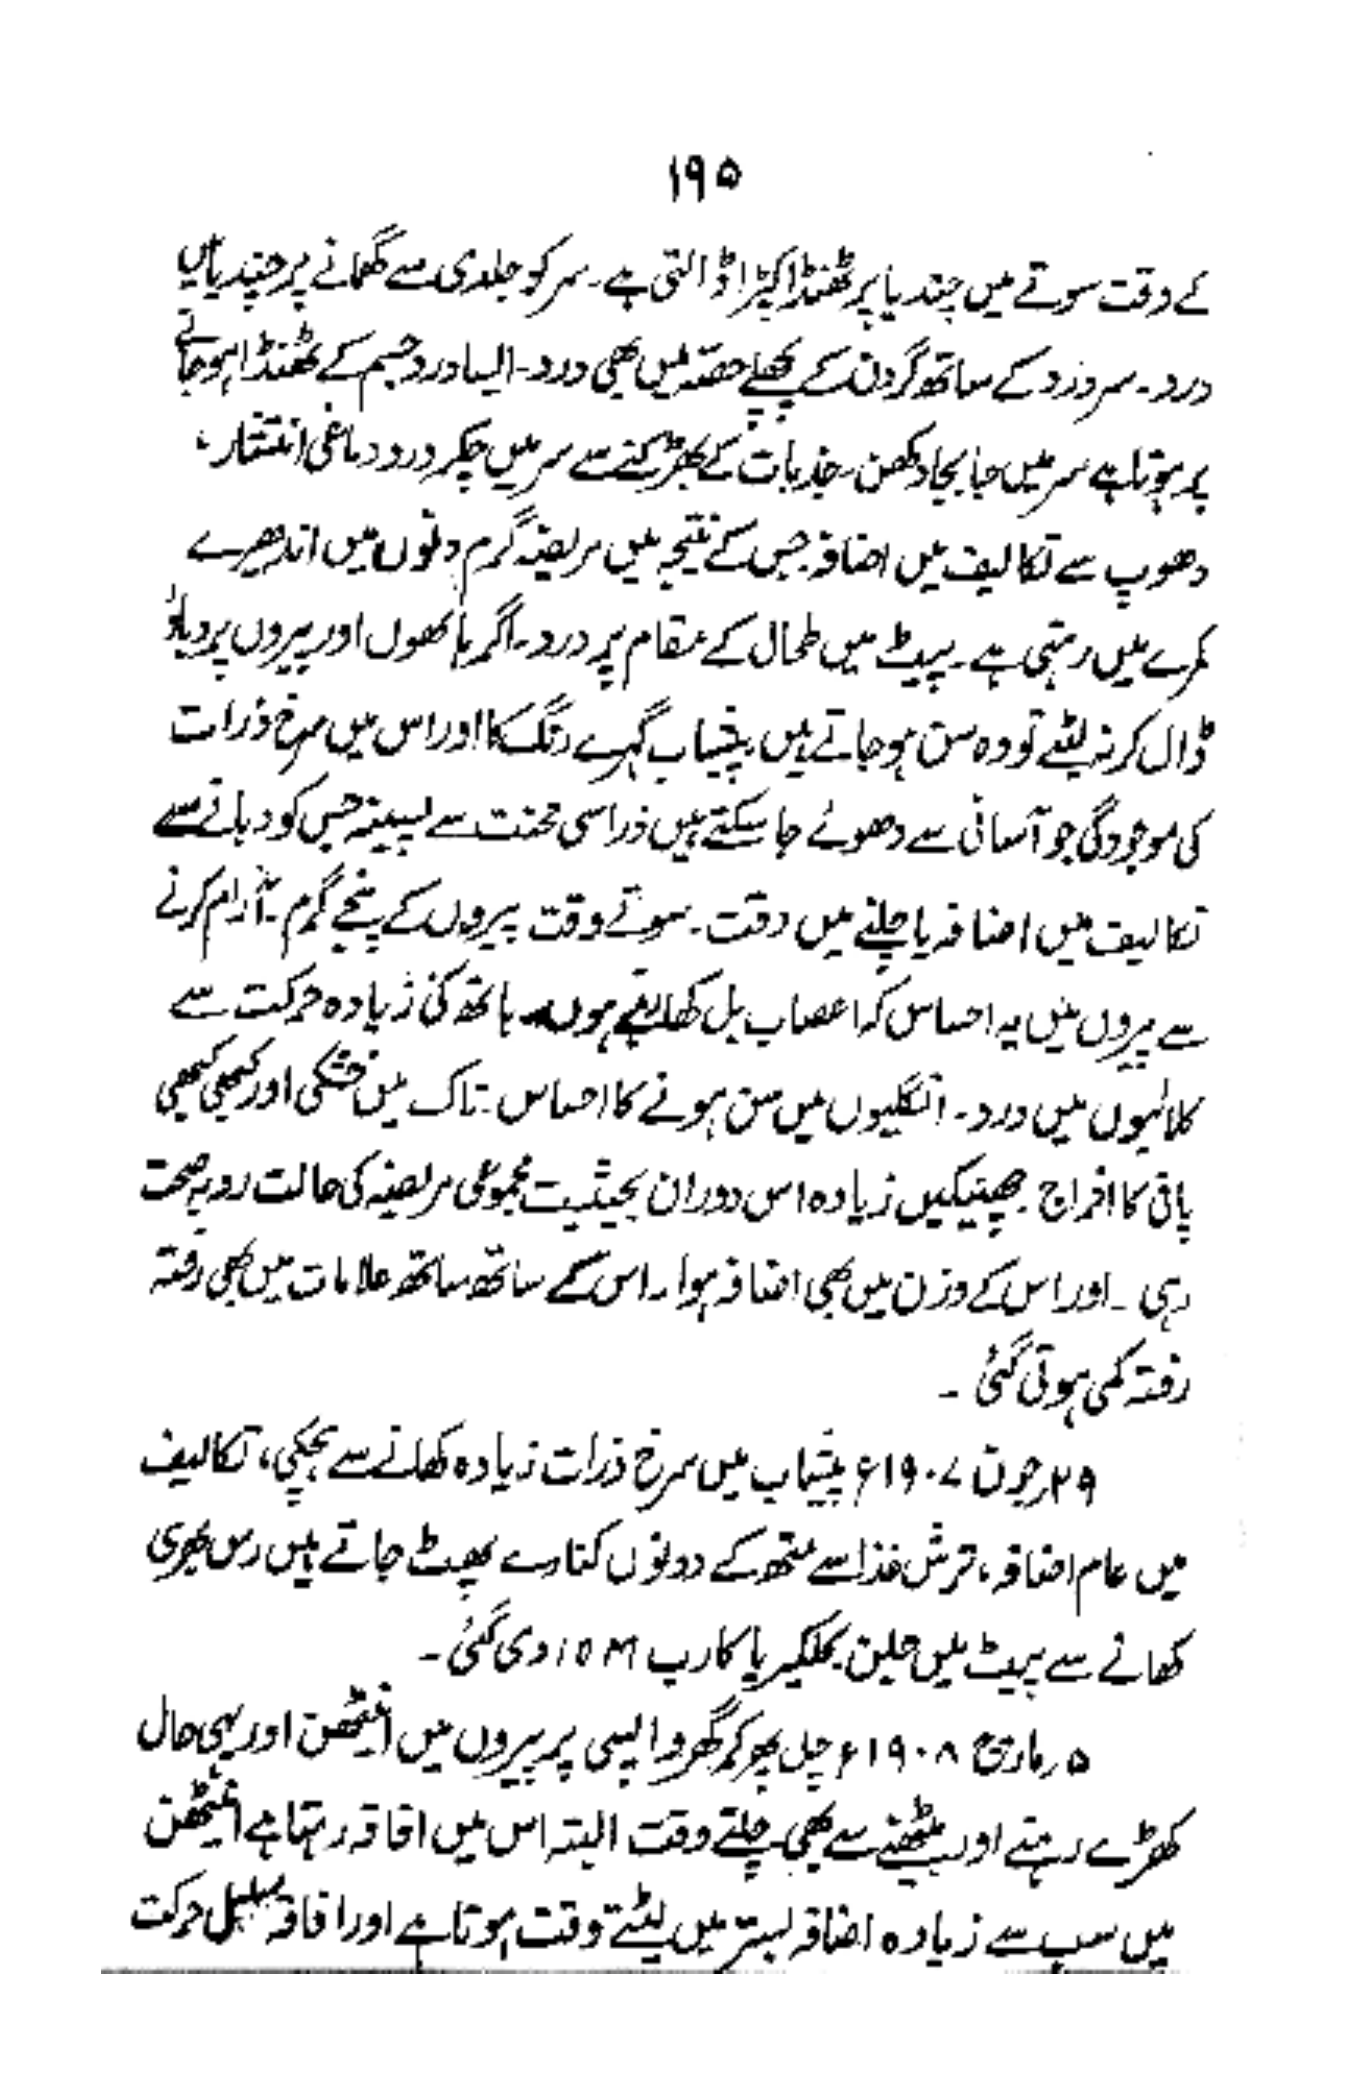 ۱۹۵
کے وقت سوتے میں چندیا پر ٹھنڈا کپڑا ڈالتی ہے۔ سر کو جلدی سے گھمانے پر چندیا میں
درد۔ سر درد کے ساتھ گردن کے پچھلے حصّہ میں بھی درد۔ ایسا درد جسم کے ٹھنڈا ہو جانے
پر ہوتا ہے سر میں جا بجا دکھن۔ جذبات کے بھڑکنے سے سر میں چکر درد دماغی انتشار،
دھوپ سے تکالیف میں اضافہ جس کے نتیجہ میں مریضہ گرم دنوں میں اندھیرے
کمرے میں رہتی ہے۔ پیٹ میں طحال کے مقام پر درد۔ اگر ہاتھوں اور پیروں پر دباؤ
ڈال کر نہ لیٹے تو وہ سن ہو جاتے ہیں۔ پیشاب گہرے رنگ کا اور اس میں سرخ ذرات
کی موجودگی جو آسانی سے دھوئے جا سکتے ہیں ذرا سی محنت سے پسینہ جس کو دبانے سے
تکالیف میں اضافہ یا چلنے میں دقت۔ سوتے وقت پیروں کے پنجے گرم۔ آرام کرنے
سے پیروں میں یہ احساس کہ اعصاب بل کھا گئے ہوں۔ ہاتھ کی زیادہ حرکت سے
کلائیوں میں درد۔ انگلیوں میں سن ہونے کا احساس۔ ناک میں خشکی اور کبھی کبھی
پانی کا اخراج۔ چھینکیں زیادہ اس دوران بحیثیت مجموعی مریضہ کی حالت روبہ صحت
رہی۔ اور اس کے وزن میں بھی اضافہ ہوا۔ اس کے ساتھ ساتھ علامات میں بھی رفتہ
رفتہ کمی ہوتی گئی ۔
۲۹ جون ۱۹۰۷ء پیشاب میں سرخ ذرات زیادہ کھانے سے ہچکی، تکالیف
میں عام اضافہ، ترش غذا سے منھ کے دونوں کنارے پھٹ جاتے ہیں رس بھری
کھانے سے پیٹ میں جلن کلکیریا کارب ۱۵M دی گئی ۔
۵ مارچ ۱۹۰۸ء چل پھر کر گھر واپسی پر پیروں میں اینٹھن اور یہی حال
کھڑے رہنے اور بیٹھنے سے بھی چلتے وقت البتہ اس میں افاقہ رہتا ہے اینٹھن
میں سب سے زیادہ اضافہ بستر میں لیٹتے وقت ہوتا ہے اور افاقہ حرکت